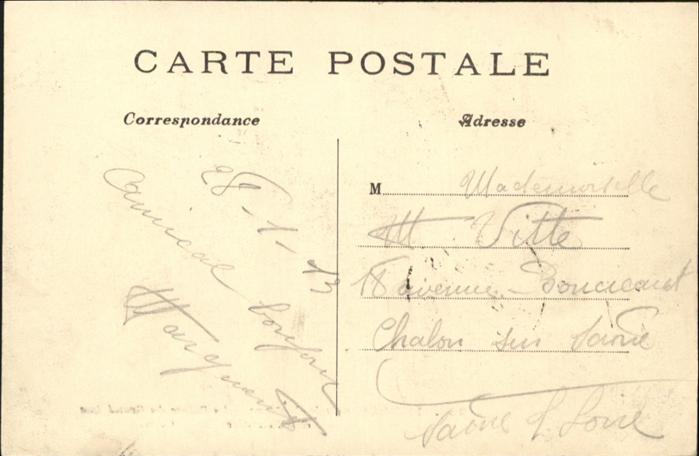 CARTE POSTALE
Correspondance
Adresse
28-1-13
Amical bonjour
Marguerite
M Mademoiselle
M Vitte
18 avenue Boucicaut
Chalon sur Saône
Saône & Loire